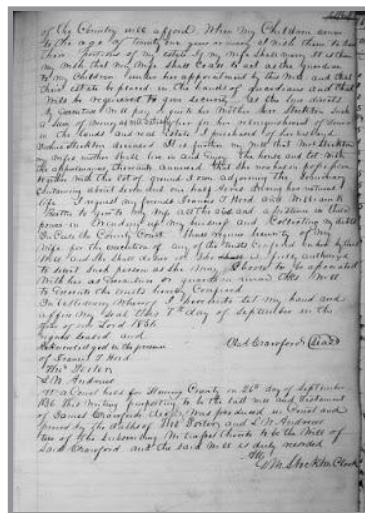 of the Country will afford. When my Children come
to the age of twenty one years or marry I wish them to have
their portions of my estate If my Wife shall marry It is then
my wish that my Wife Shall Cease to act as the guardian
to my Children under her appointment by this Will and that
their estate be placed in the hands of guardians and that
Will be required to give security
my Executrix will pay to her Mother Mrs Stockton such
a Sum of money as will satisfy her for her relinquishment of Dower
in the lands and real estate I purchased of her husband
Stockton deceased It is further my will that Mrs Stockton
my wifes mother shall live in and Enjoy the house and lot with
the appurtenances thereunto annexed that she now has in possession
together with the lot of ground I own adjoining the
Containing about seven and one half Acres during her natural
life I request my friends Francis T Hord and William
to give to my Wife all the aid and assistance in their
power in winding up my business and Collecting my debts
In Case the County Court should require Security of my
Wife for the execution of any of the trusts Confered on her by this
Will and She shall desire it She is fully authorized
to select such person as she may Choose to be associated
With her as Executor or guardian under this Will
to Execute the trusts hereby Confered
In testimony Whereof I have hereunto set my hand and
affix my Seal this 7th day of September in the
Year of our Lord 1836
Signed Sealed and
Acknowledged in the presence
of Francis T Hord
Thos Porter
L W Andrews
Crawford (Seal)
At a Court held for Fleming County on 26th day of September
1836 This writing purporting to be the last will and testament
of James Crawford decd was produced in Court and
proved by the oaths of Thos Porter and L W Andrews
two of the Subscribing Witnesses thereto to be the Will of
Said Crawford and the said Will is duly recorded
Att
Stockton Clerk